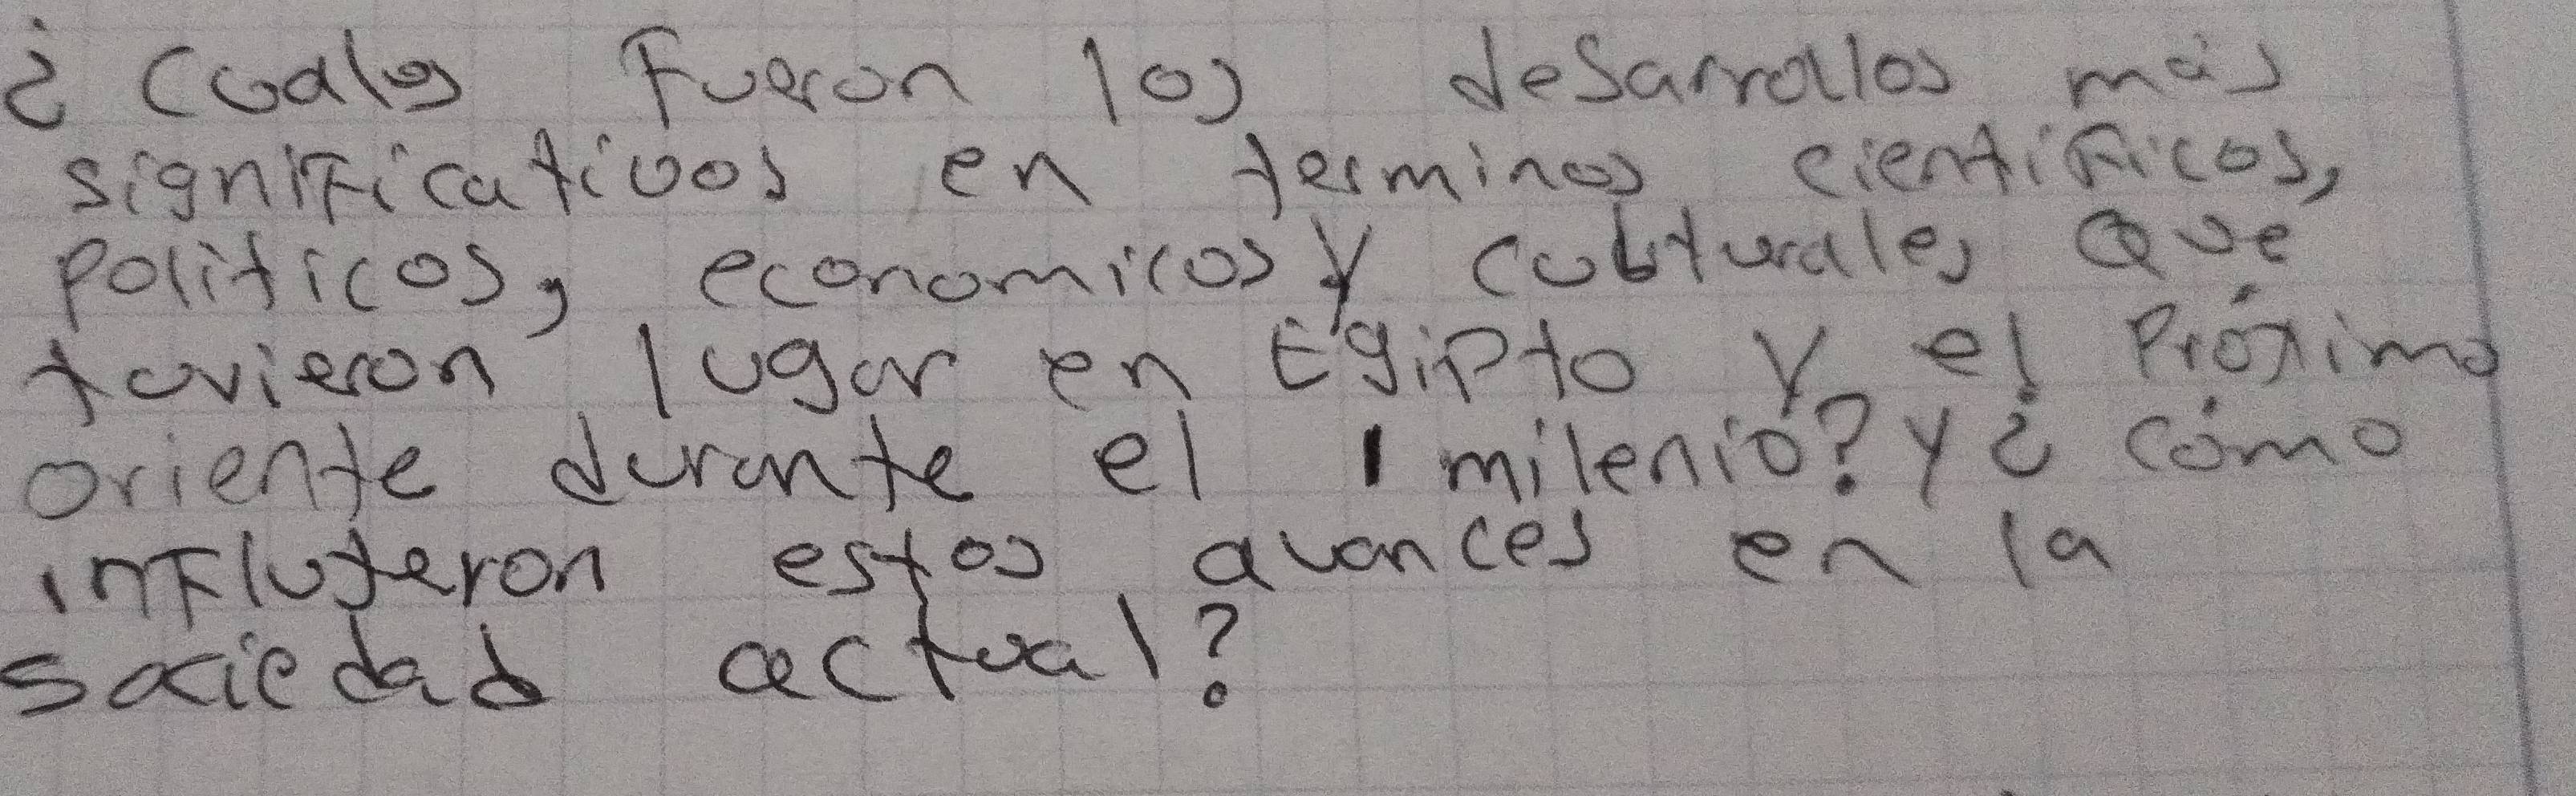 ¿Cuales Fueron los desarrollos más
significativos en terminos científicos,
politicos, economicos y culturales Que
tuvieron lugar en Egipto y el Próximo
oriente durante el 1 milenio? y ¿ cómo
influyeron estos avances en la
sociedad actual?